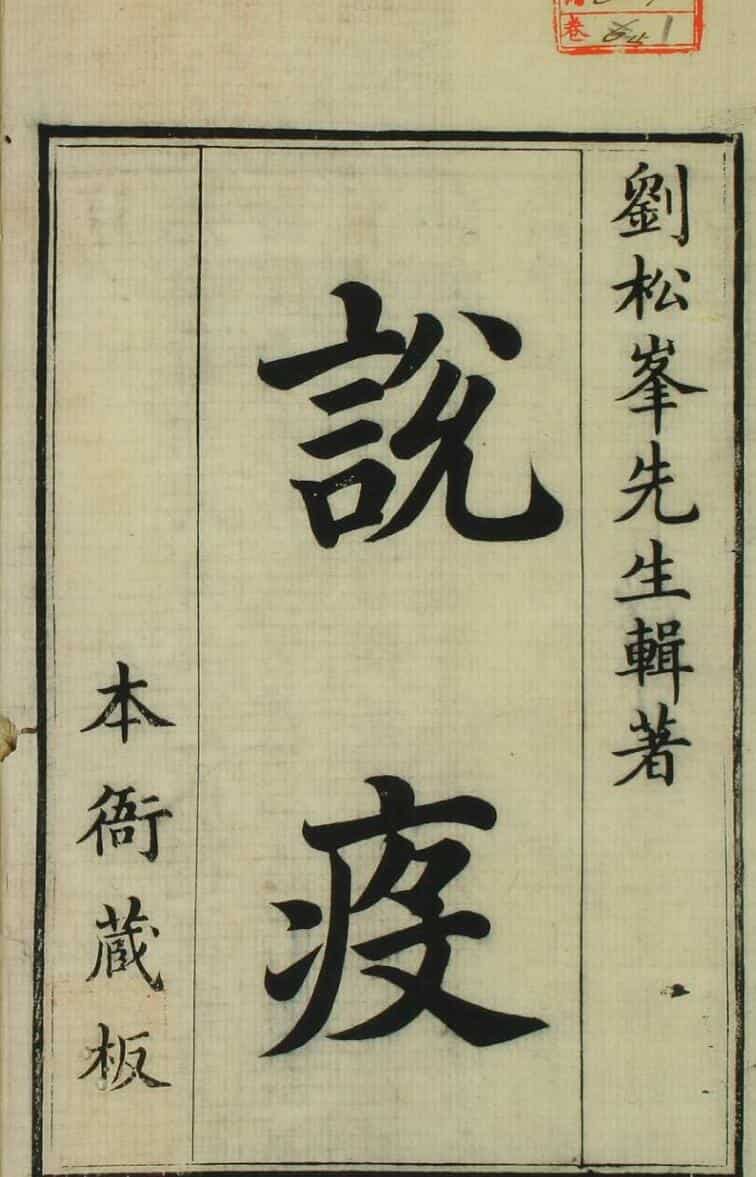 劉松峯先生輯著
說疫
本衙蔵板
卷